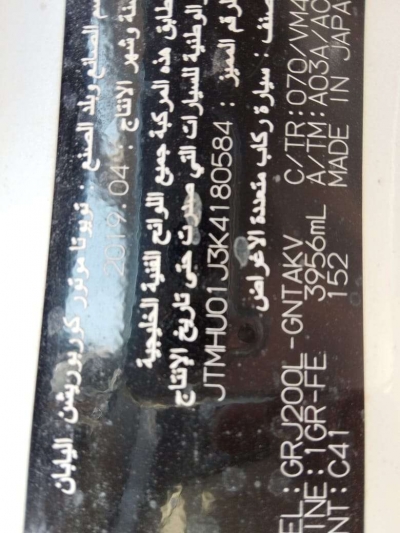 م الصانع وبلد الصنع : تويوتا موتور كوربوريشن اليابان
نة وشهر الانتاج : 2019.04
طابق هذه المركبة جميع اللوائح الفنية الخليجية
الوطنية للسيارات التي صدرت حتى تاريخ الإنتاج
رقم المميز : JTMHU01J3K4180584
صنف : سيارة ركاب متعددة الاغراض
EL:GRJ200L-GNTAKV C/TR:070/VM4
INE:1GR-FE 3956mL A/TM:A03A/AC
NT:C41 152 MADE IN JAPA